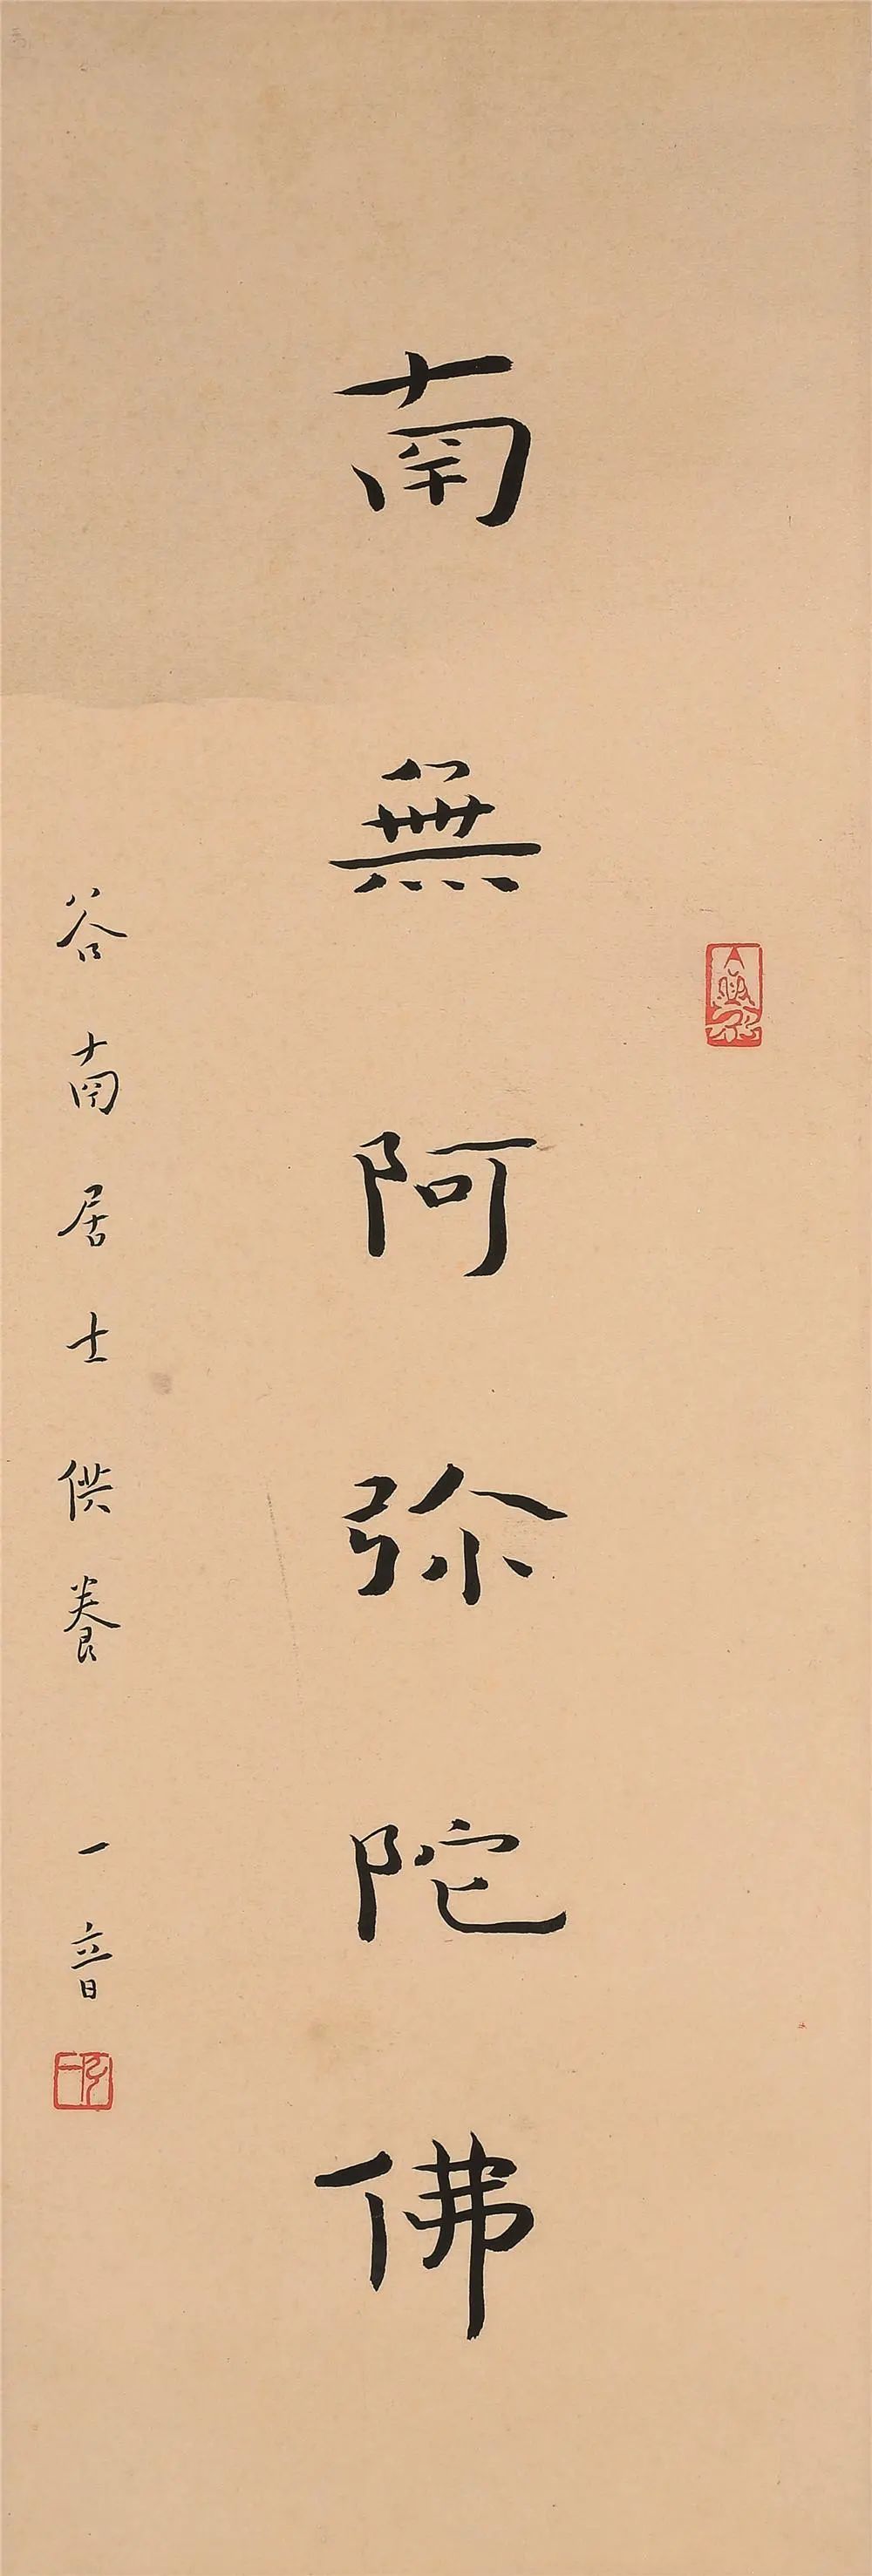 南無阿弥陀佛
谷南居士供養 一音